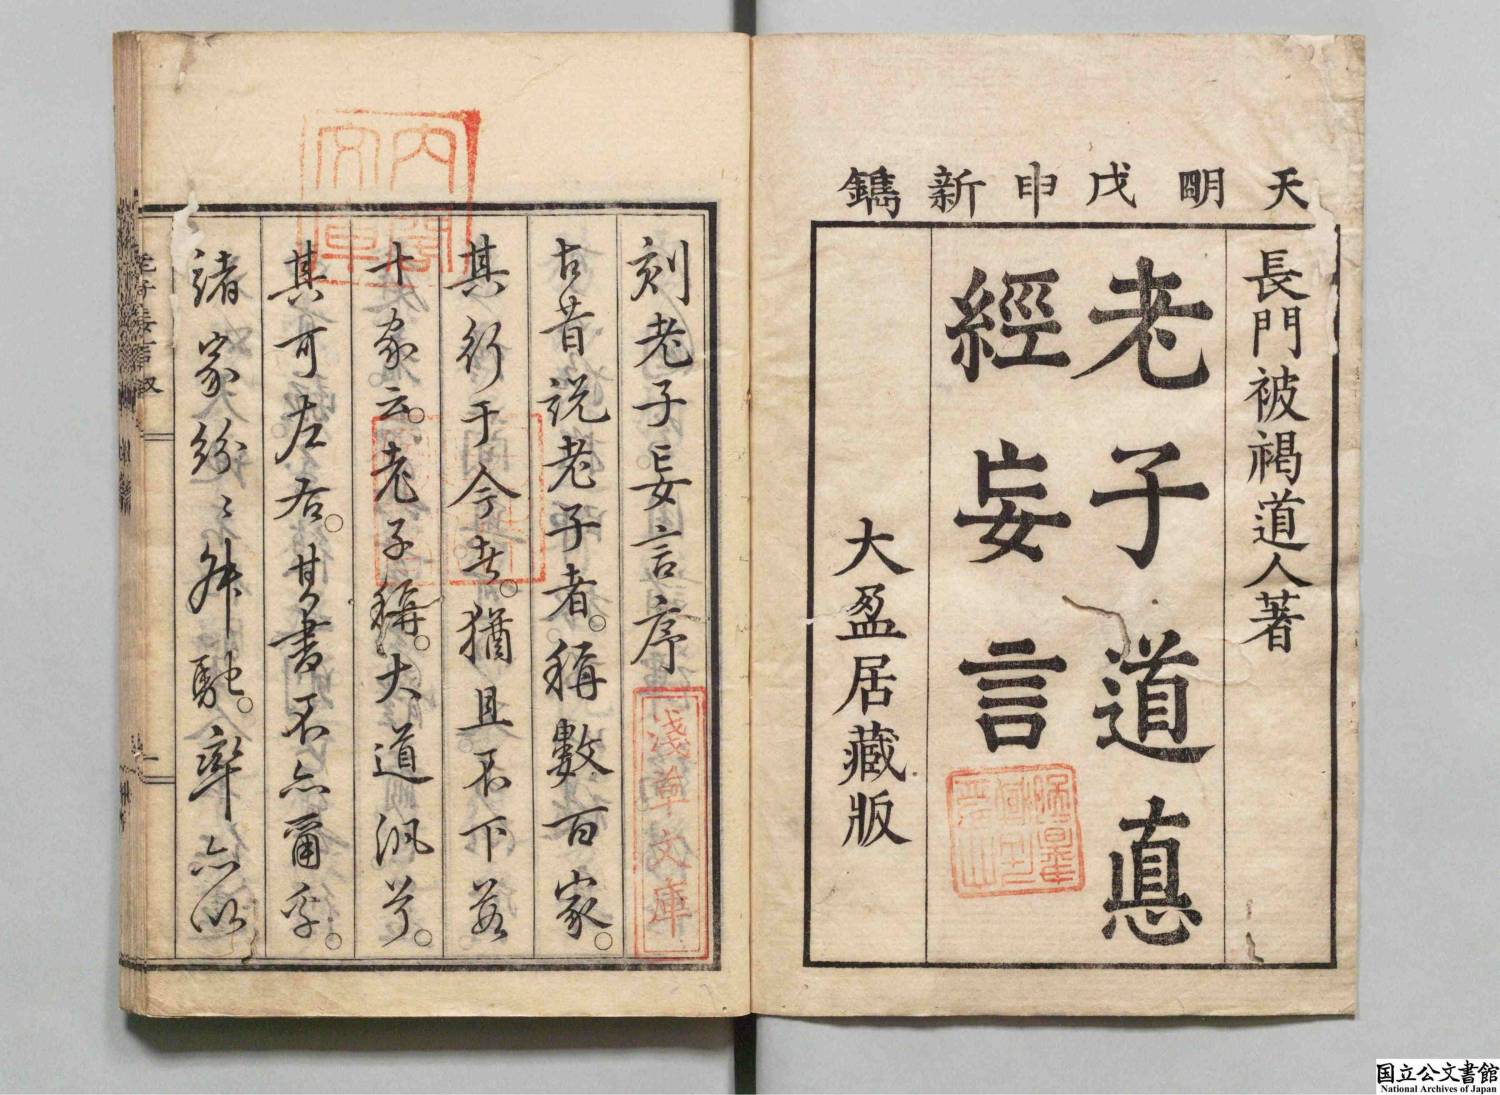 天明戊申新鐫
長門被褐道人著
老子道悳
經妄言
大盈居藏版
刻老子妄言序
古昔説老子者。稱數百家。
其行于今者。猶且不下若
十家云。老子稱。大道汎兮。
其可左右。其書不亦爾乎。
諸家紛〻舛馳。率亦以
淺草文庫
内閣
文庫
国立公文書館
National Archives of Japan